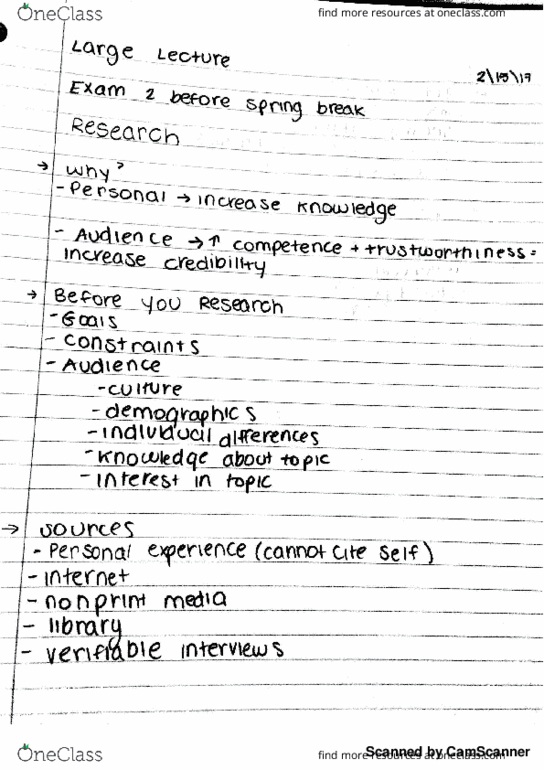 OneClass
find more resources at oneclass.com
Large Lecture
Exam 2 before spring break
Research
→ Why?
- Personal → increase knowledge
- Audience → ↑ competence + trustworthiness =
increase credibility
→ Before you Research
- Goals
- Constraints
- Audience
- culture
- demographics
- individual differences
- knowledge about topic
- interest in topic
→ Sources
- Personal experience (cannot cite self)
- internet
- nonprint media
- library
- verifiable interviews
OneClass
find more resources at oneclass.com
Scanned by CamScanner